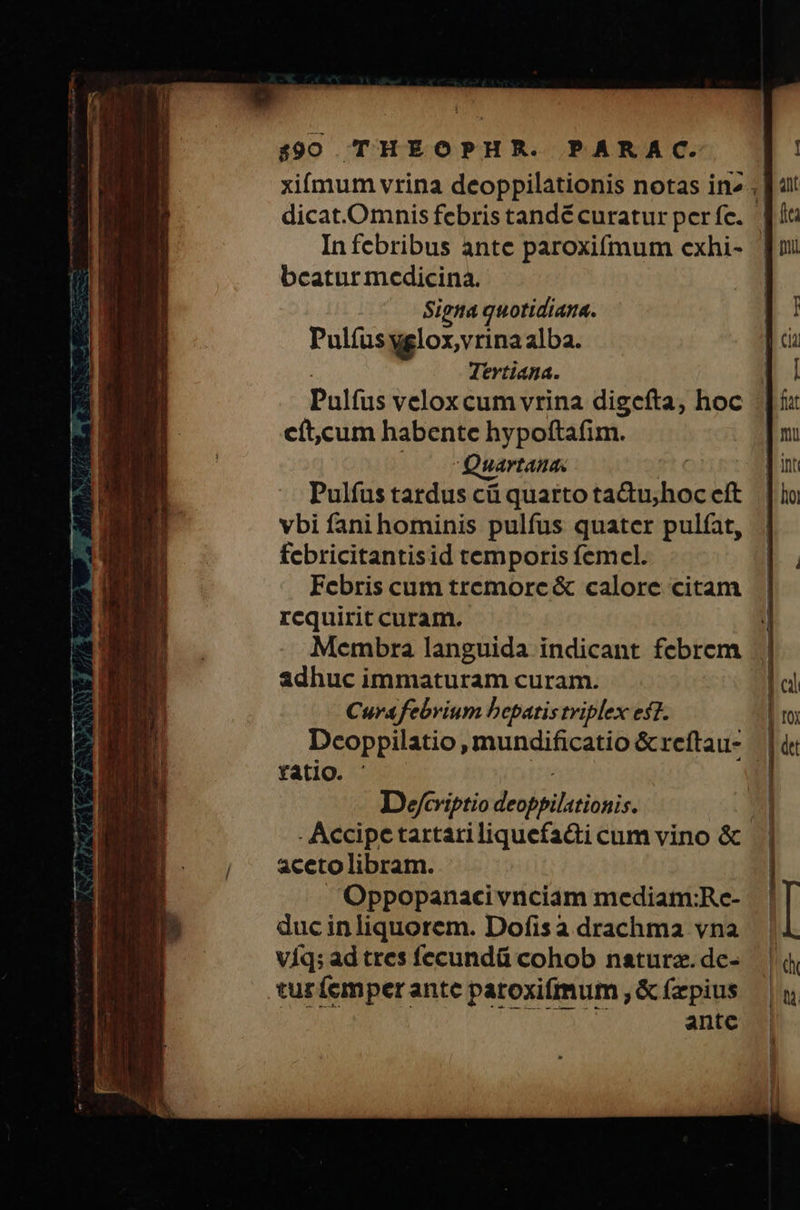 590 THEOPHR. PARAC.
xiſmum vrina deoppilationis notas in-
dicat. Omnis febris tandē curatur per ſe.
In febribus ante paroxiſmum exhi-
beatur medicina.
Signa quotidiana.
Pulſus velox, vrina alba.
Tertiana.
Pulſus velox cum vrina digeſta, hoc
eſt, cum habente hypoſtaſim.
Quartana.
Pulſus tardus cū quarto tactu, hoc eſt
vbi ſani hominis pulſus quater pulſat,
febricitantis id temporis ſemel.
Febris cum tremore & calore citam
requirit curam.
Membra languida indicant febrem
adhuc immaturam curam.
Cura febrium hepatis triplex est.
Deoppilatio, mundificatio & reſtau-
ratio.
Deſcriptio deoppilationis.
Accipe tartari liquefacti cum vino &
aceto libram.
Oppopanaci vnciam mediam: Re-
duc in liquorem. Doſis à drachma vna
vſq; ad tres ſecundū cohob naturæ. de-
tur ſemper ante paroxiſmum, & ſæpius
ante